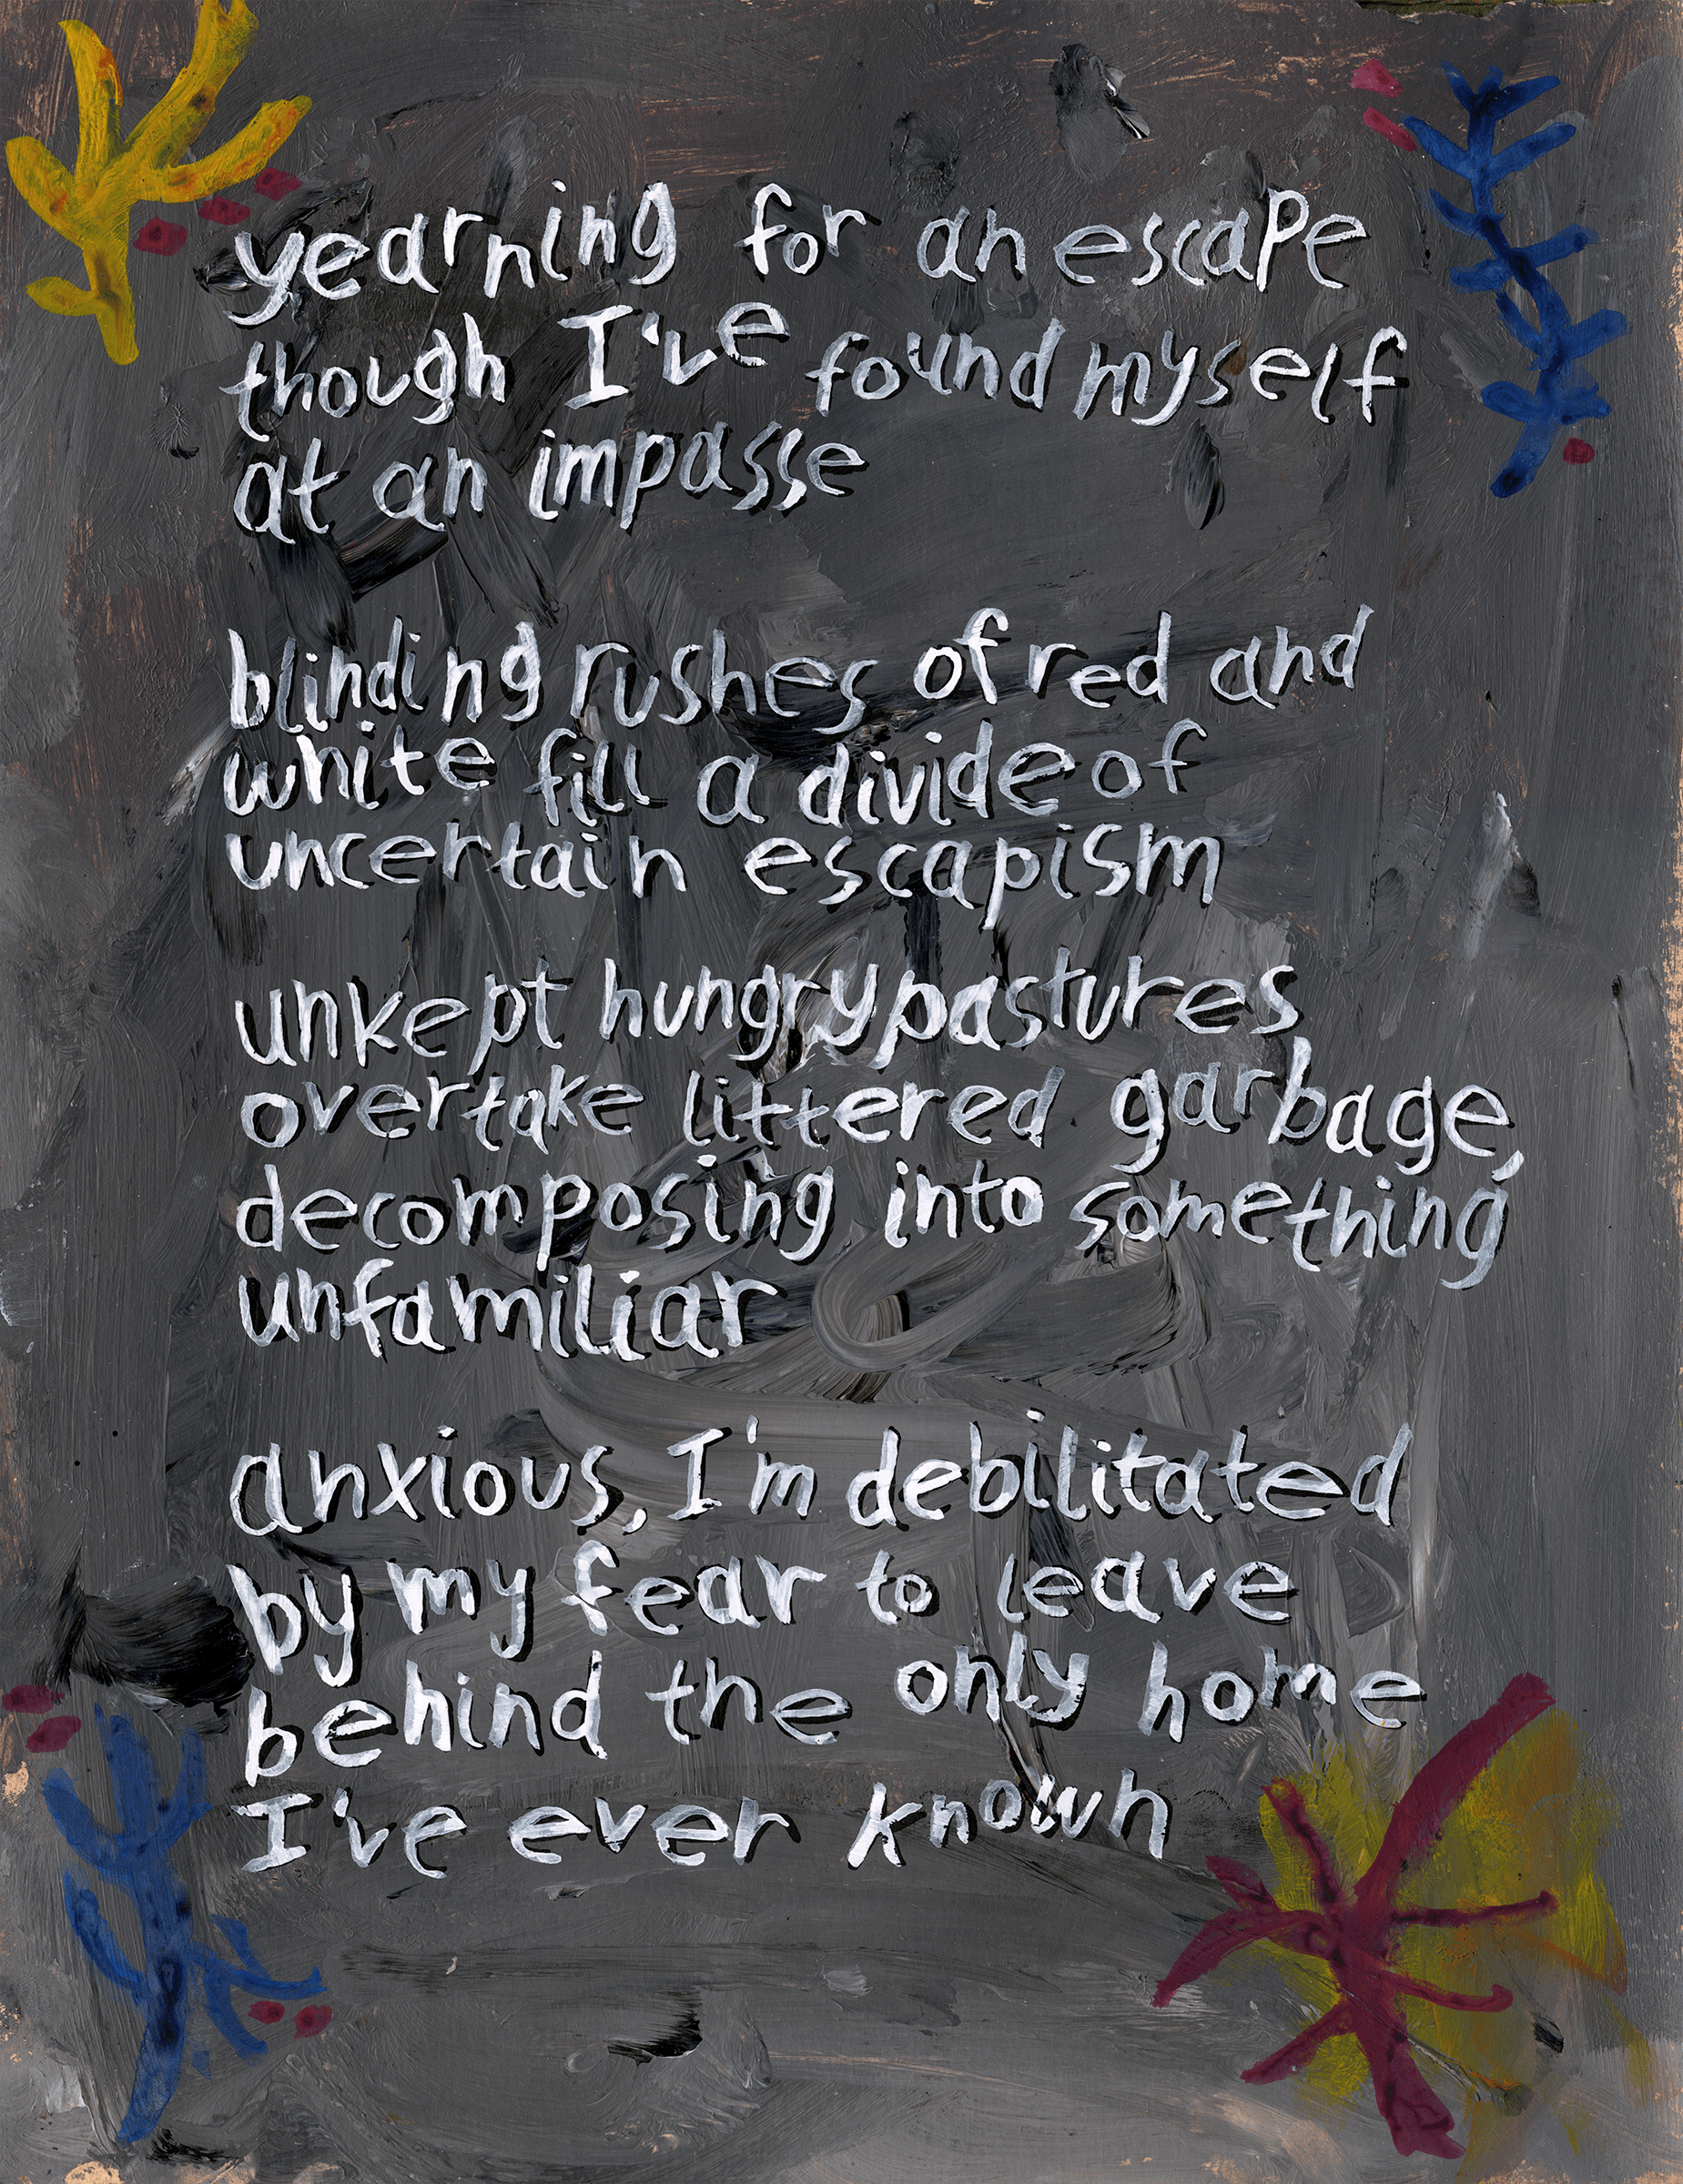 yearning for an escape
though I've found myself
at an impasse
blinding rushes of red and
white fill a divide of
uncertain escapism
unkept hungry pastures
overtake littered garbage,
decomposing into something
unfamiliar
anxious, I'm debilitated
by my fear to leave
behind the only home
I've ever known